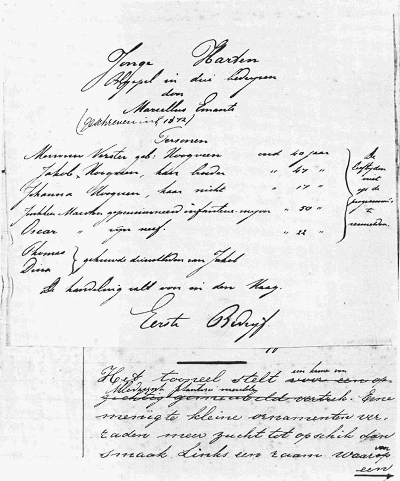 Jonge Harten
Blijspel in drie bedrijven
door
Marcellus Emants
(geschreven in 1872)
Personen
Mevrouw Verster geb: Hoogveen oud 40 jaar
Jakob Hoogveen, haar broeder " 47 "
Johanna Hoogveen, haar nicht " 17 "
Jonkheer Maerten gepensioneerd infanterie-majoor " 50 "
Oscar " zijn neef. " 22 "
De
leeftijden
niet
op de
programma's
te
vermelden.
Thomas
Dina
gehuwde dienstboden van Jakob
De handeling valt voor in den Haag.
Eerste Bedrijf.
Het tooneel stelt voor een op-
een kamer van
vertrek. Eene
menigte kleine ornamenten ver-
raden meer zucht tot opschik dan
smaak. Links een raam waarop
een